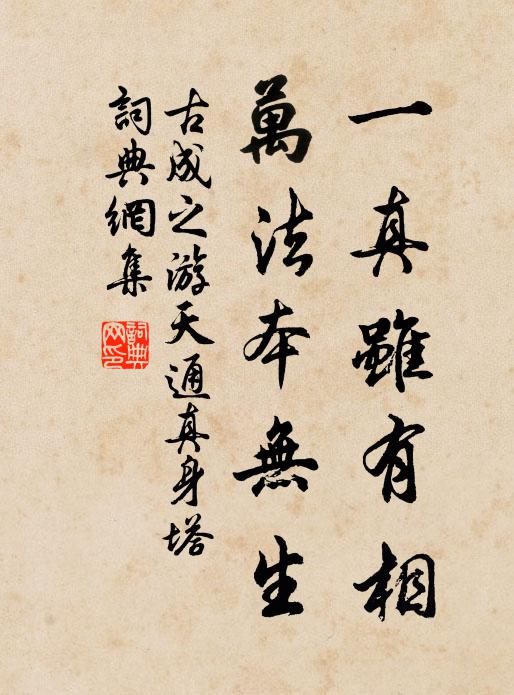 一真雖有相
萬法本無生
古成之游天通真身塔
詞典網集
詞典网印